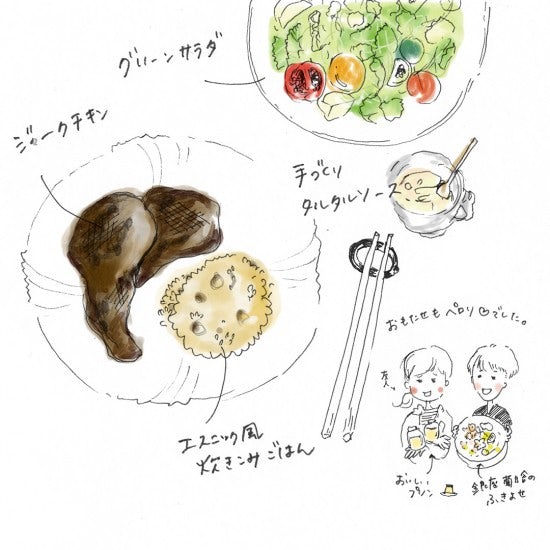 グリーンサラダ
ジャークチキン
手づくり
タルタルソース
おもたせもペロリ♡でした。
友人
エスニック風
炊きこみごはん
おいしい
プリン
銀座 菊廼舎の
ふきよせ